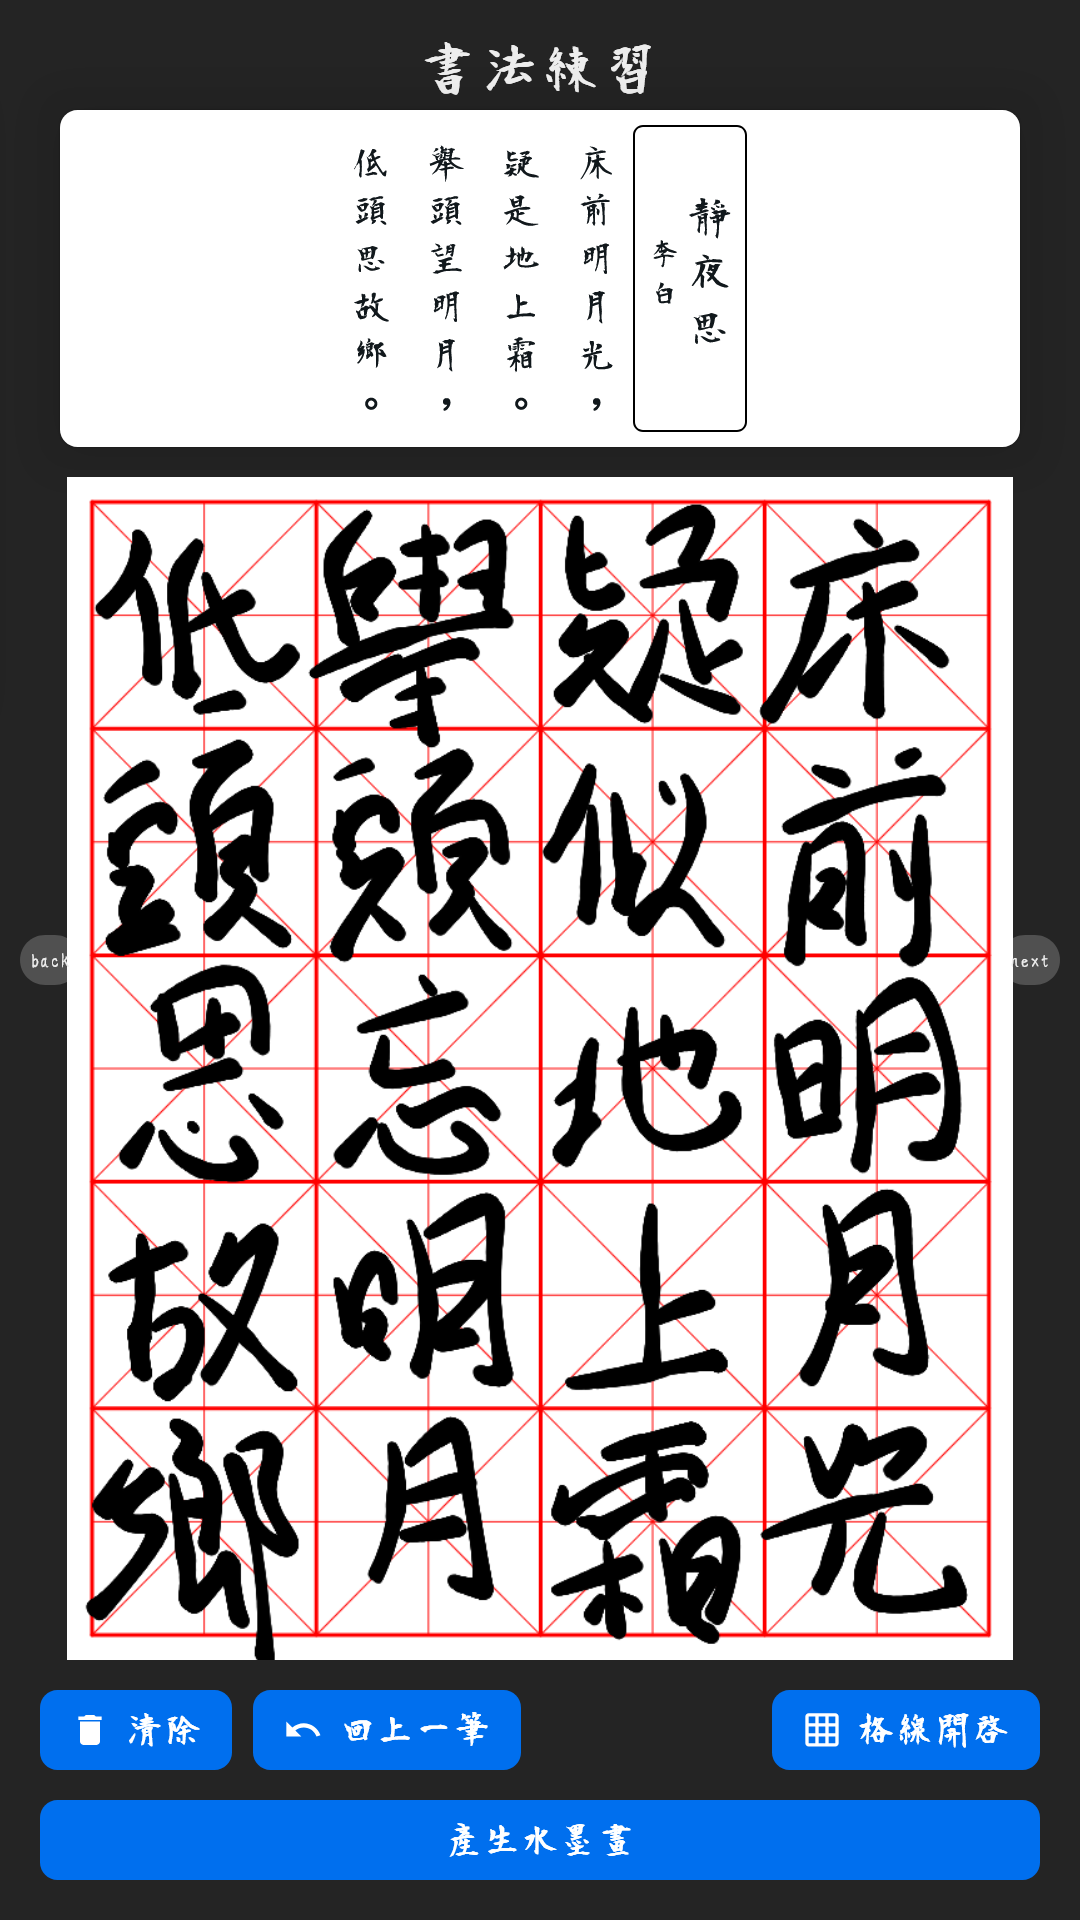 書法練習
靜夜思
李白
床前明月光，
疑是地上霜。
舉頭望明月，
低頭思故鄉。
床前明月光
疑似地上霜
舉頭忘明月
低頭思故鄉
back
next
清除
回上一筆
格線開啓
產生水墨畫